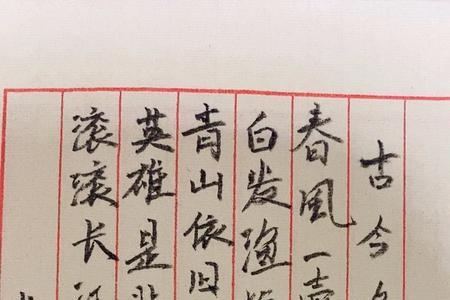 滚滚长
英雄是非
青山依旧
白发渔
春風一壶
古今